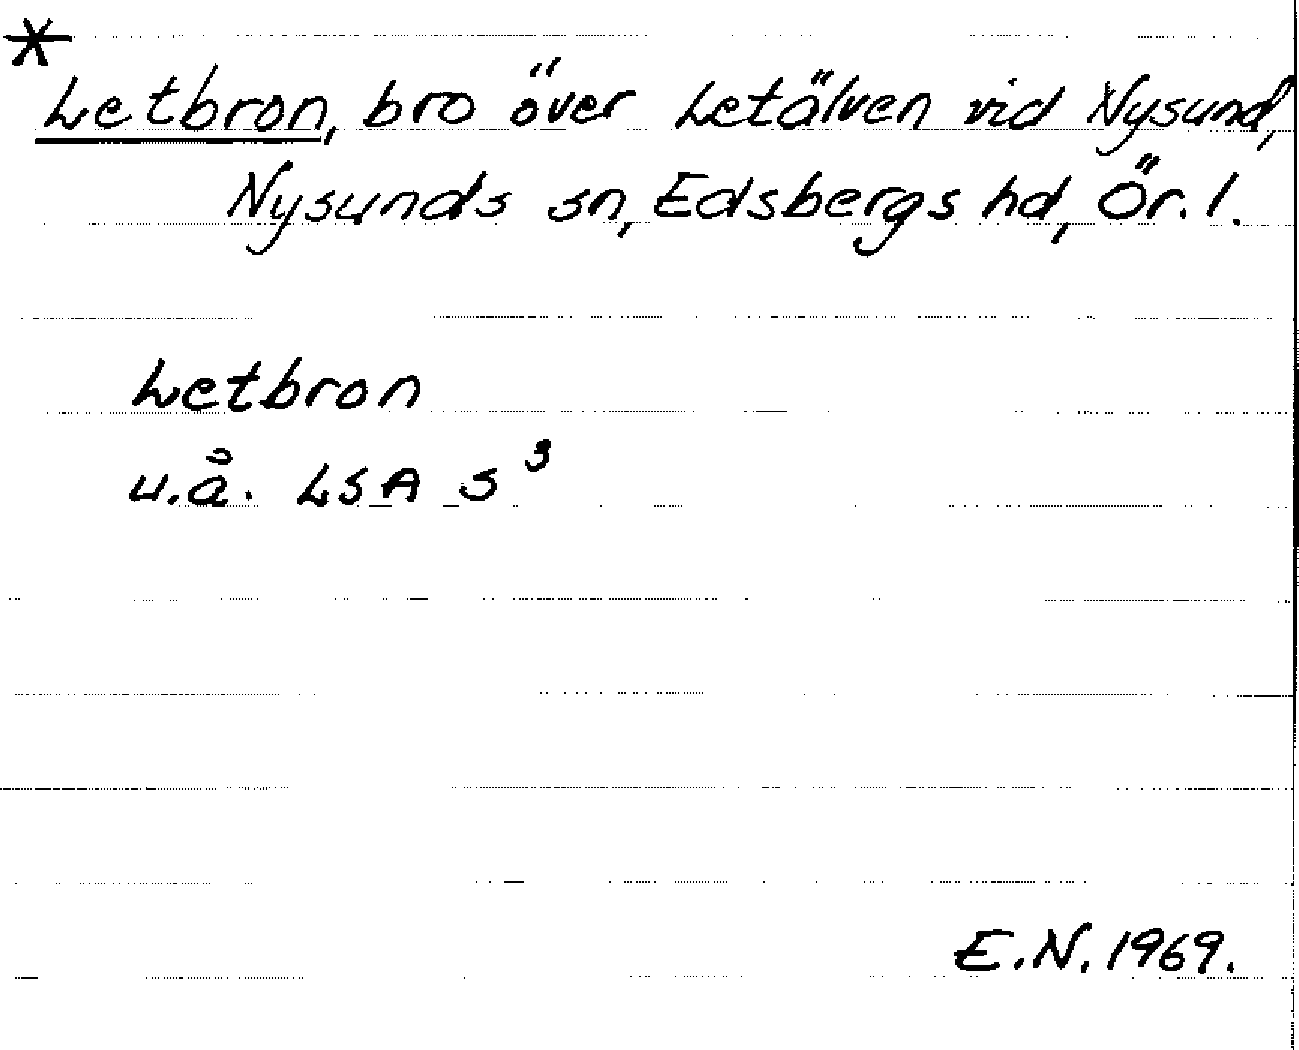 *
Letbron, bro över Letälven vid Nysund,
Nysunds sn, Edsbergs hd, Ör. l.
Letbron
u.å. LSA S³
E.N. 1969.